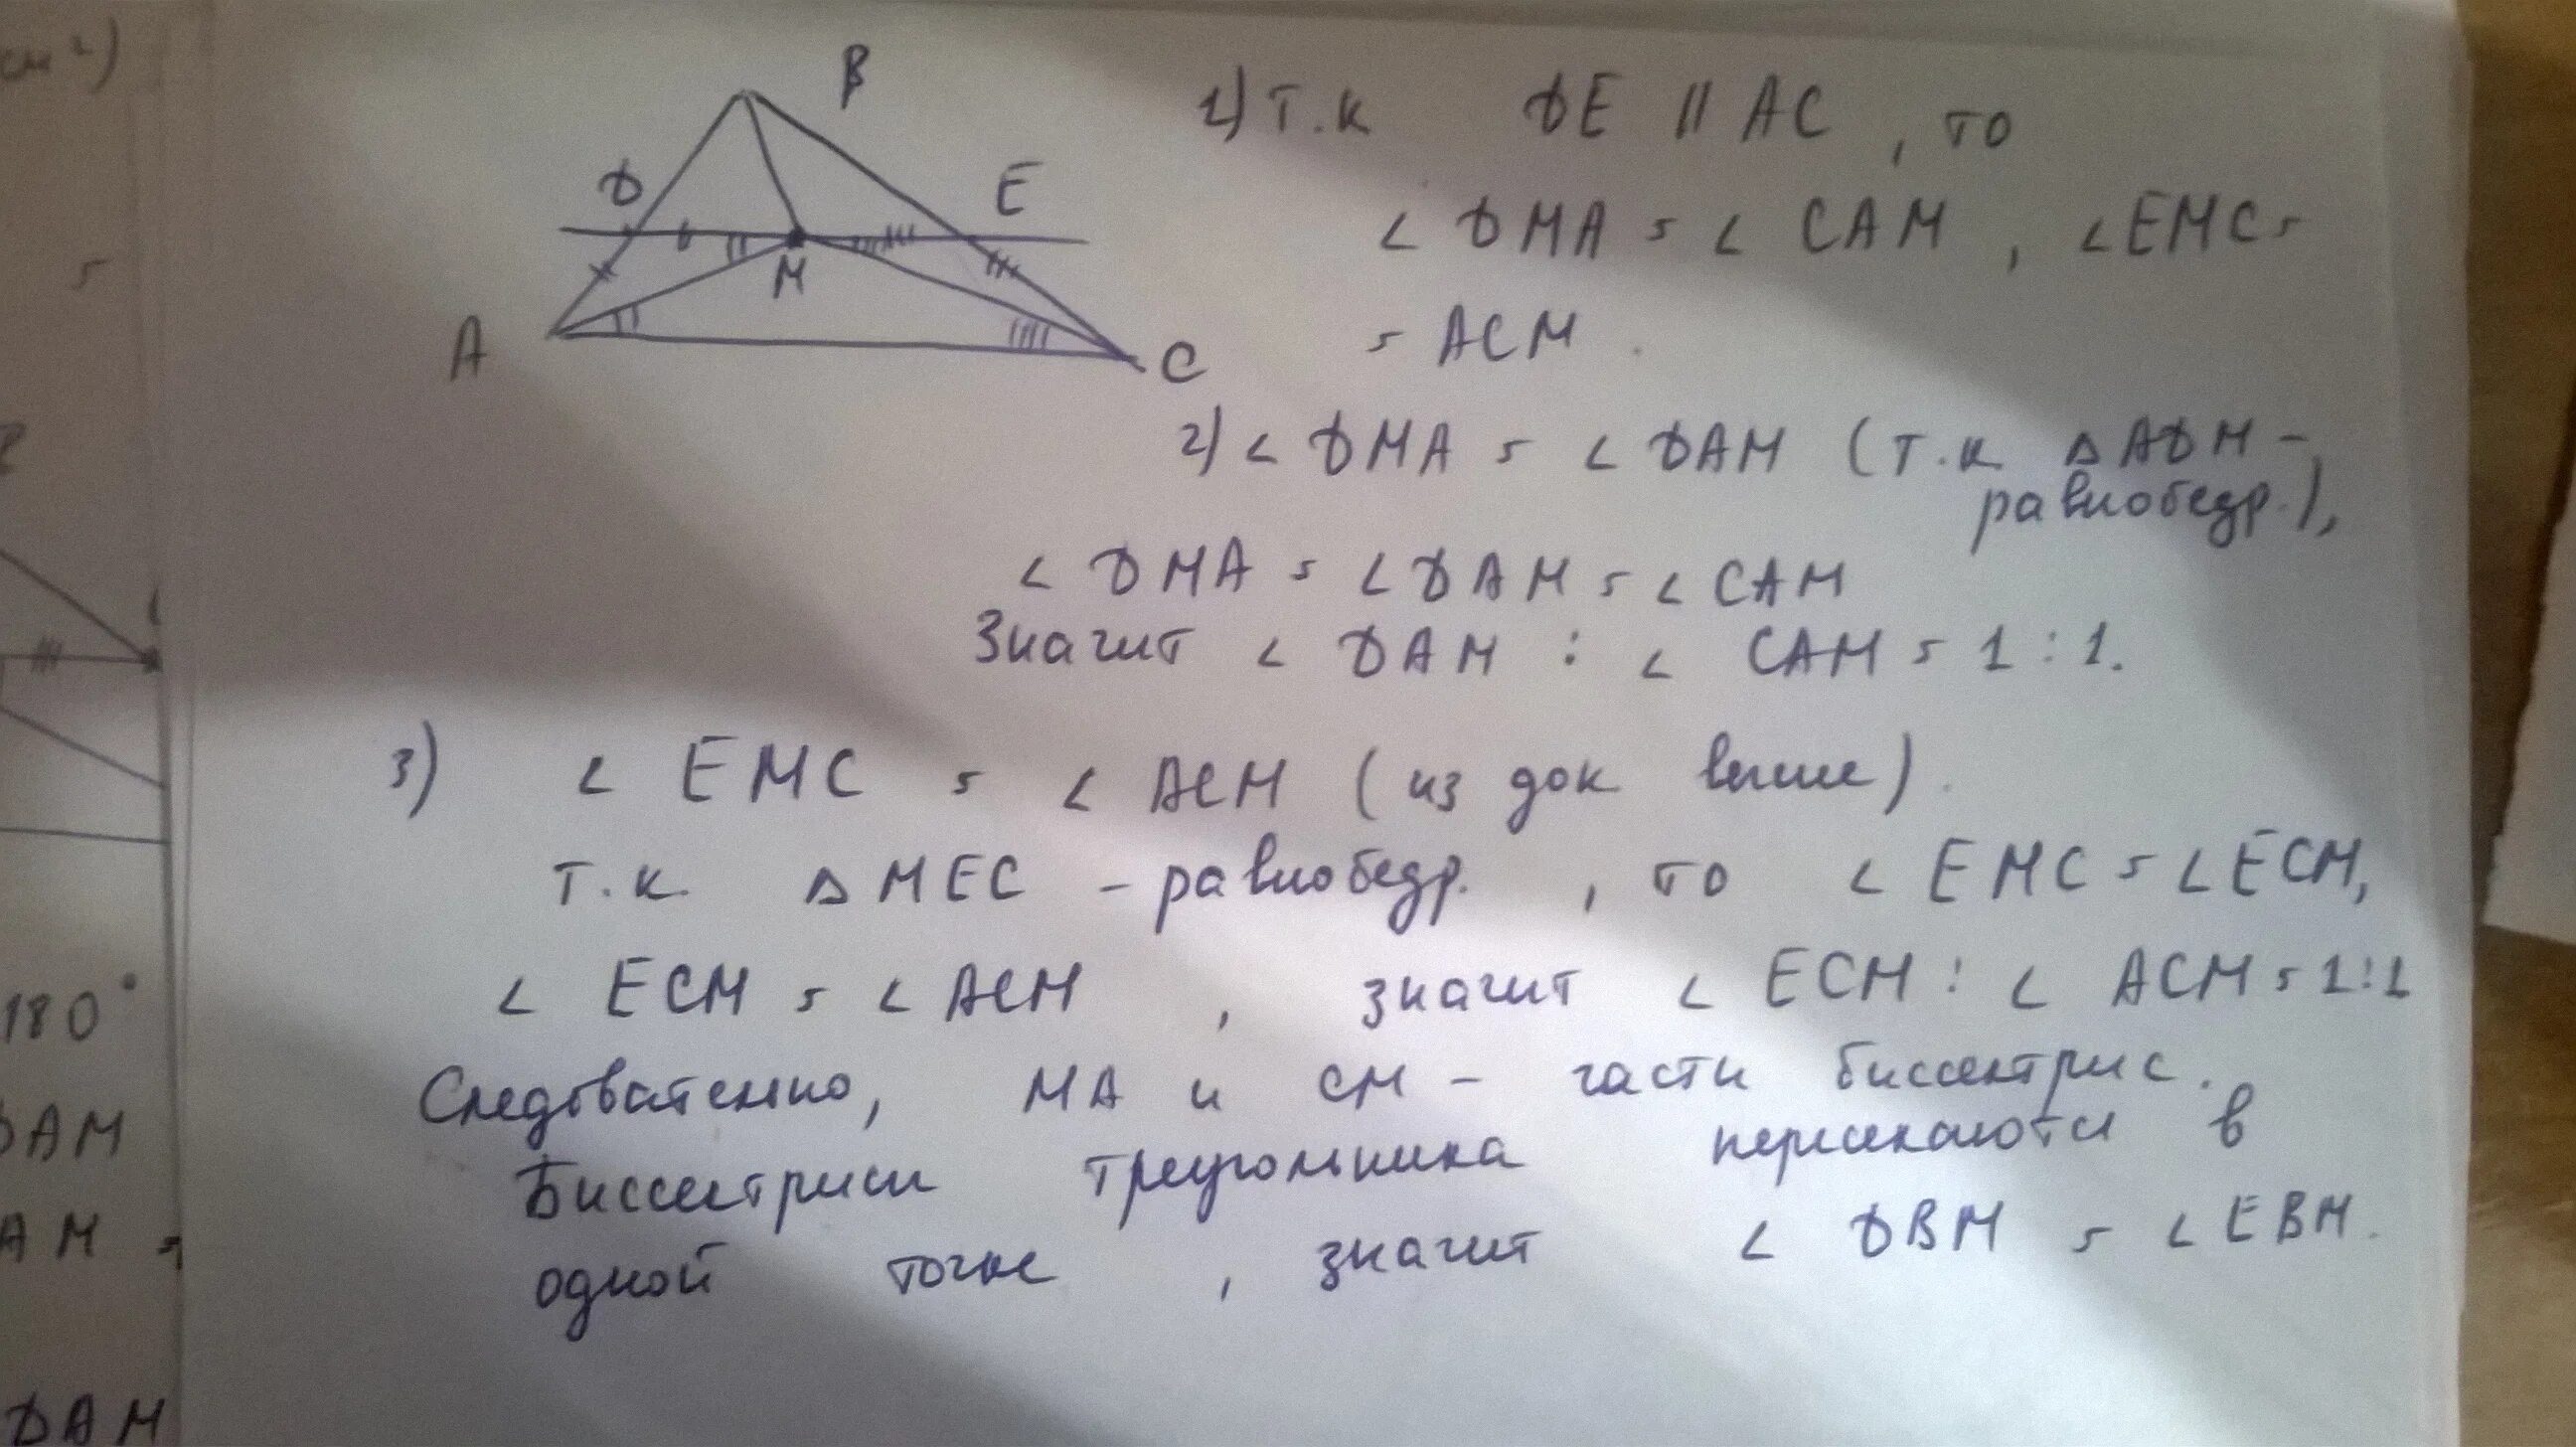 см²)
B
D
E
M
A
C
1) Т.к DE || AC , то
∠ DMA = ∠ CAM , ∠EMC =
= ACM
2) ∠ DMA = ∠ DAM (т.к △ADM –
равнобедр.),
∠ DMA = ∠DAM = ∠ CAM
Значит ∠ DAM : ∠ CAM = 1 : 1.
3) ∠ EMC = ∠ ACM (из док выше).
Т.к. △ MEC – равнобедр. , то ∠ EMC = ∠ECM,
∠ ECM = ∠ ACM , значит ∠ ECM : ∠ ACM = 1:1
Следовательно, MA и CM – части биссектрис.
Биссектрисы треугольника пересекаются в
одной точке , значит ∠ DBM = ∠EBM.
180°
DAM
AM =
DAM